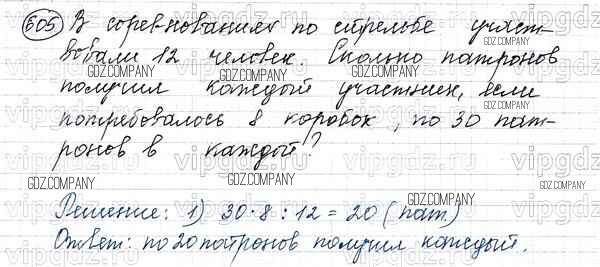 605 В соревнованиях по стрельбе участ-
вовали 12 человек. Сколько патронов
получил каждый участник, если
потребовалось 8 коробок, по 30 пат-
ронов в каждой?
Решение: 1) 30·8:12=20 (пат)
Ответ: по 20 патронов получил каждый.
GDZ.COMPANY
GDZ.COMPANY
GDZ.COMPANY
GDZ.COMPANY
GDZ.COMPANY
GDZ.COMPANY
GDZ.COMPANY
GDZ.COMPANY
vipgdz.ru
vipgdz.ru
vipgdz.ru